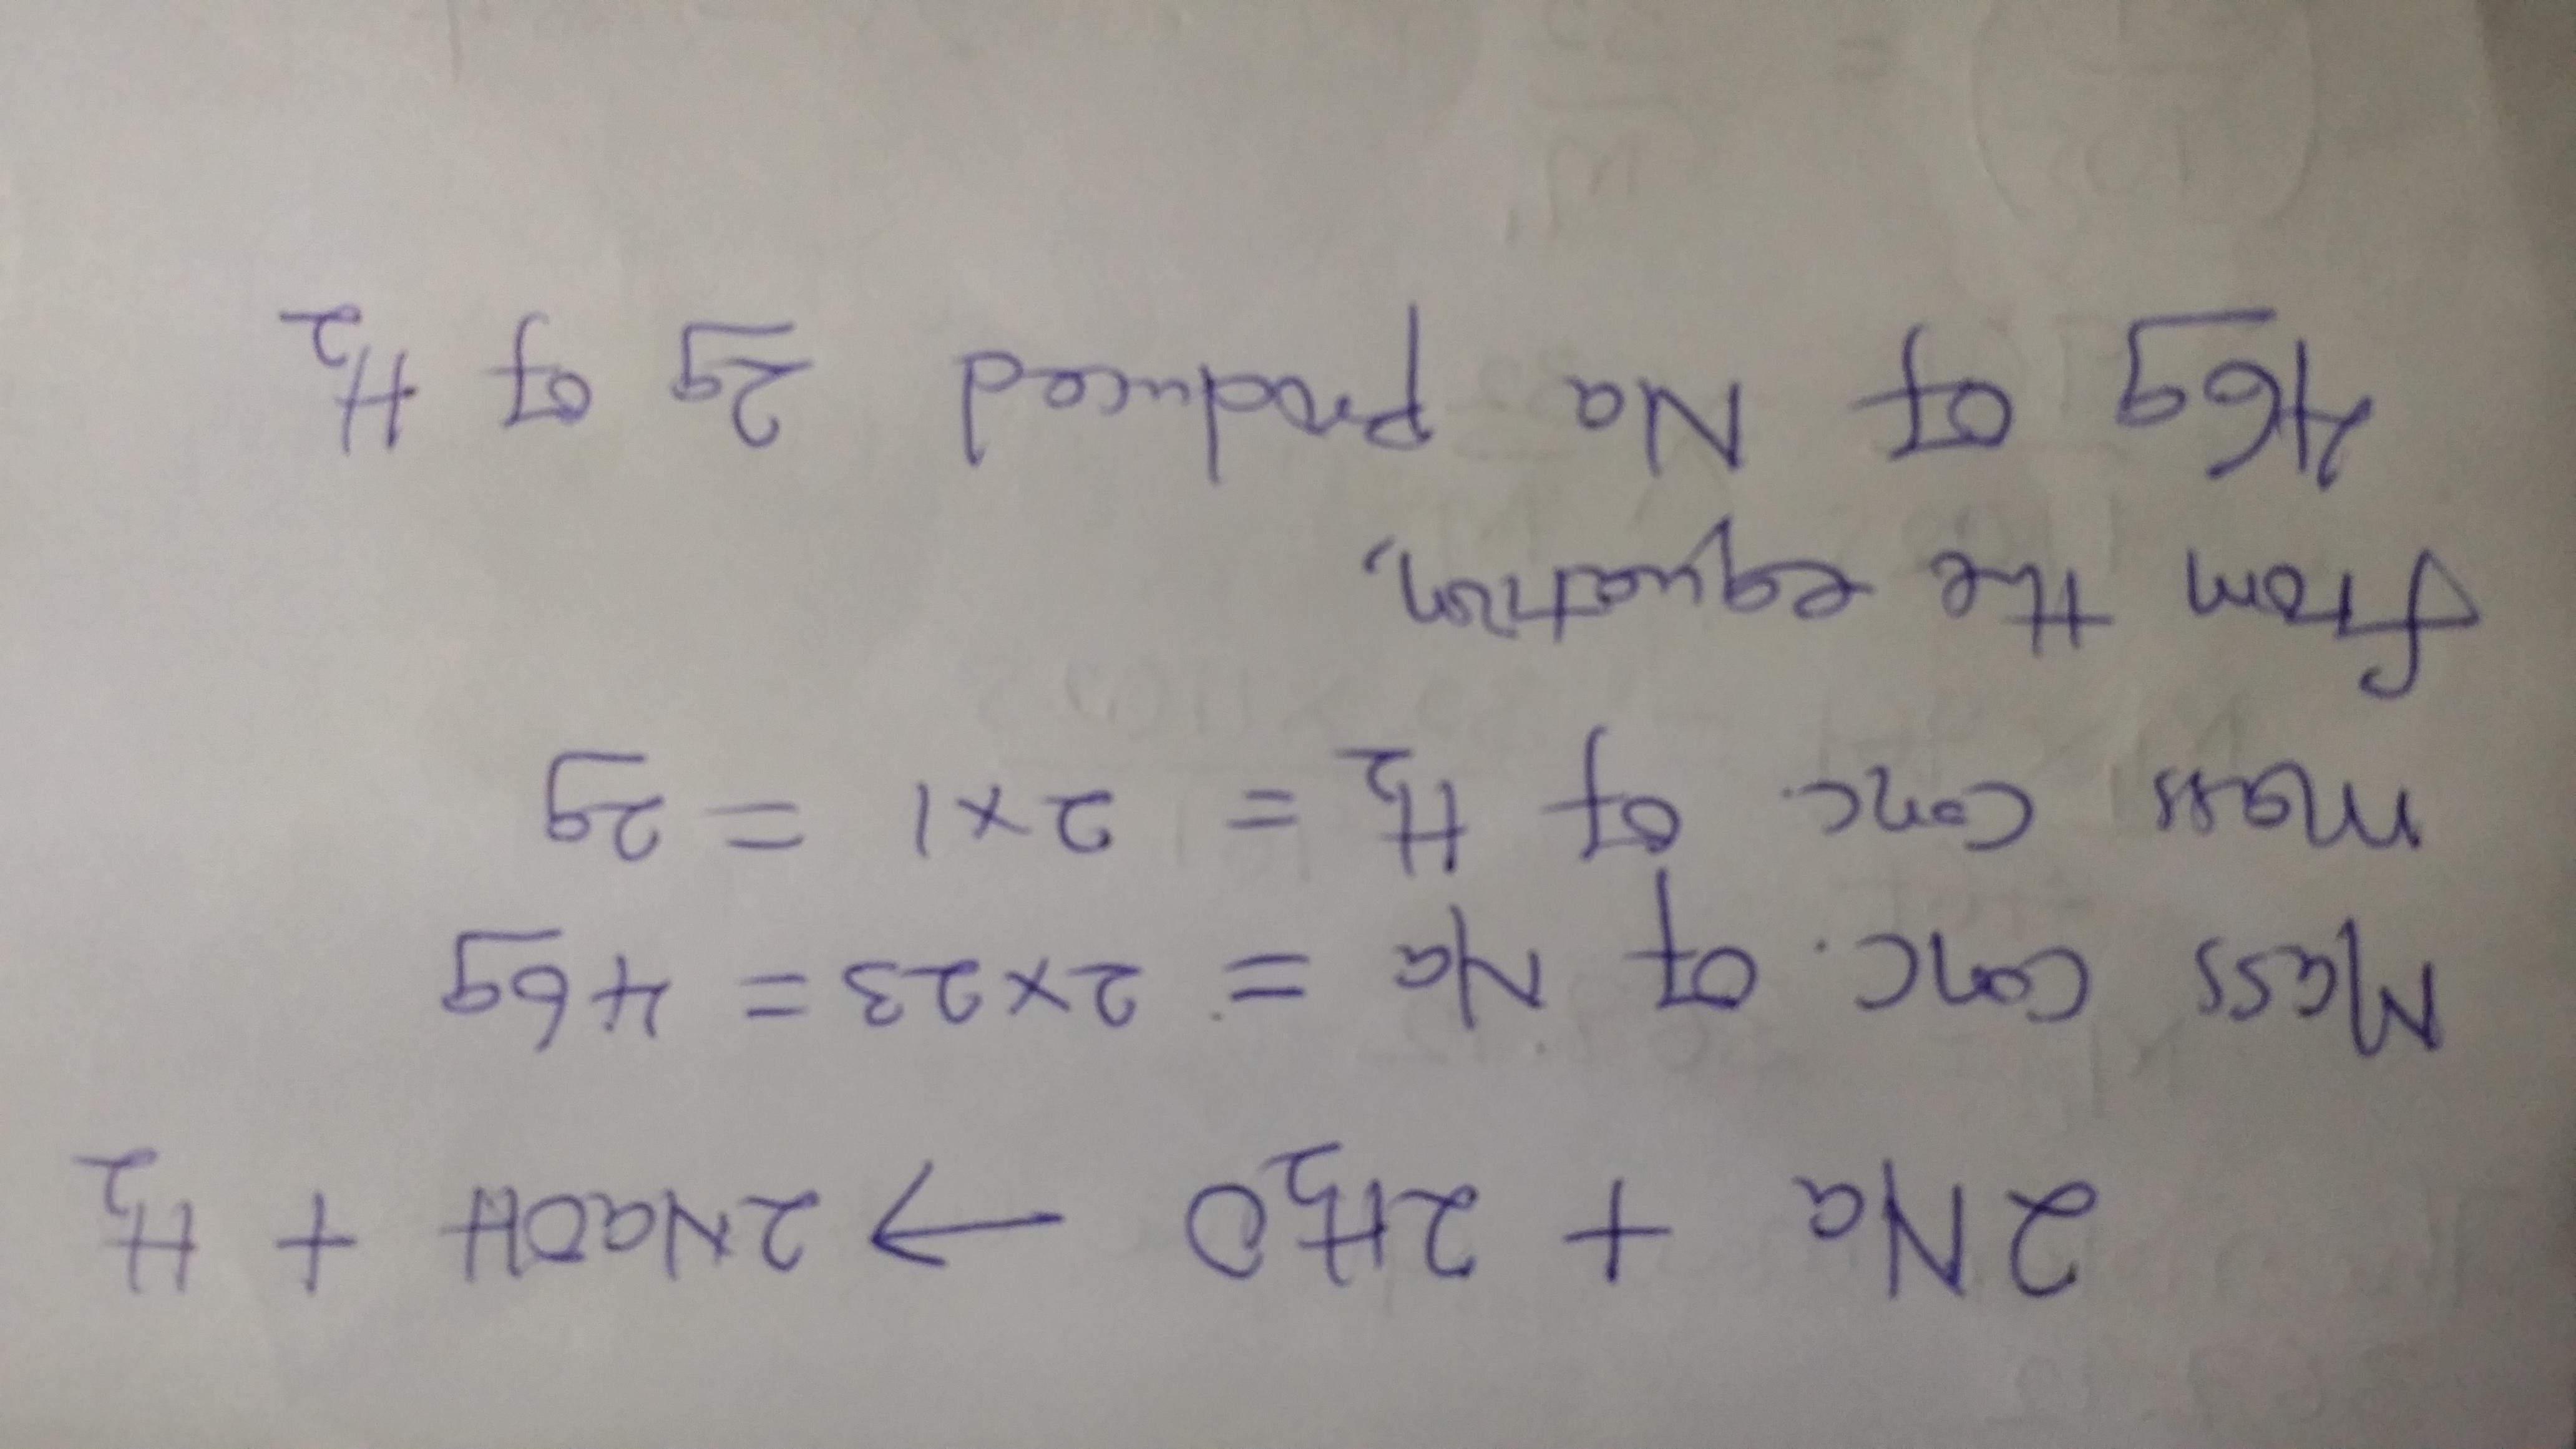 2Na + 2H₂O → 2NaOH + H₂
Mass conc. of Na = 2×23 = 46g
mass conc. of H₂ = 2×1 = 2g
from the equation,
46g of Na produced 2g of H₂